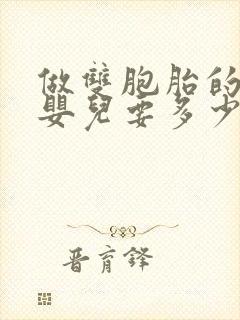 做雙胞胎的
嬰兒要多少
晋育鋒